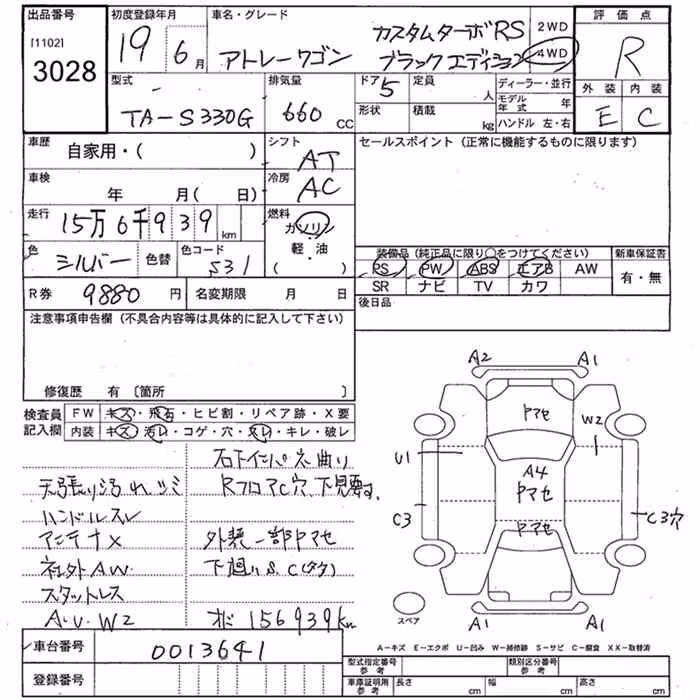 出品番号 初度登録年月 車名・グレード カスタムターボRS 2WD 評価点
[1102] 3028 19年 6月 アトレーワゴン ブラックエディション 4WD R
型式 排気量 ドア 5 定員 人 ディーラー・並行 外装 内装
TA-S330G 660 CC 形状 積載 kg モデル年式 年 E C
ハンドル 左・右
車歴 自家用・( ) シフト AT セールスポイント (正常に機能するものに限ります)
車検 年 月( 日) 冷房 AC
走行 15万6千939 km 燃料 ガソリン
色 シルバー 色替 色コード S31 軽・油 ( )
装備品 (純正品に限り○をつけてください) 新車保証書
PS PW ABS エアB AW 有・無
SR ナビ TV カワ
R券 9880円 名変期限 月 日 後日品
注意事項申告欄 (不具合内容等は具体的に記入して下さい)
修復歴 有 〔箇所
検査員記入欄 FW キズ・飛石・ヒビ割・リペア跡・X要
内装 キズ・汚れ・コゲ・穴・スレ・キレ・破レ
天張り汚れ、シミ
ハンドルスレ
アンテナX
社外AW
スタットレス
A・U・W2
右下インパネ曲り
RフロアC穴、下見要す
外装一部Pマセ
下廻りS、C(タタ)
オド 156939km
A2 A1
Pマセ
W2
U1
A4
Pマセ
C3 C3穴
Pマセ
スペア A1 A1
A−キズ E−エクボ U−凹み W−補修跡 S−サビ C−腐食 XX−取替済
車台番号 0013641
型式指定番号 参考 類別区分番号 参考
車庫証明用 参考 長さ cm 幅 cm 高さ cm